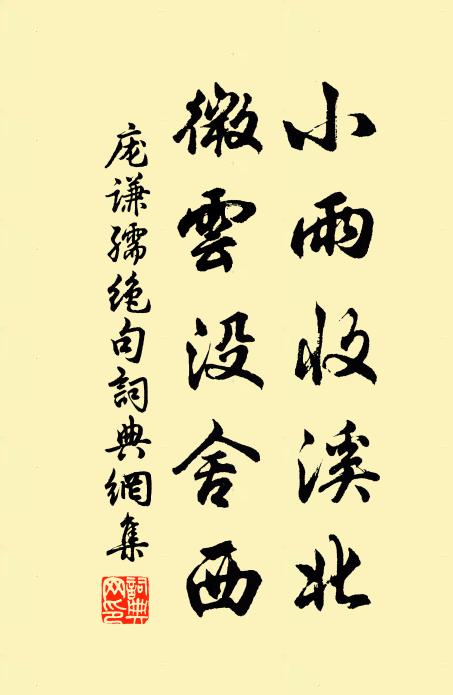 小雨收溪北
微雲没舍西
庞谦孺絶句詞典網集
詞典網印